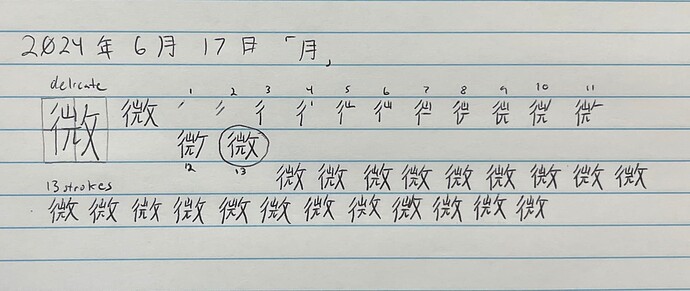 2024 年 6 月 17 日 「月」
delicate 1 2 3 4 5 6 7 8 9 10 11
微 微 彳
微
12 13
微 微 微 微 微 微 微 微 微
13 strokes
微 微 微 微 微 微 微 微 微 微 微 微